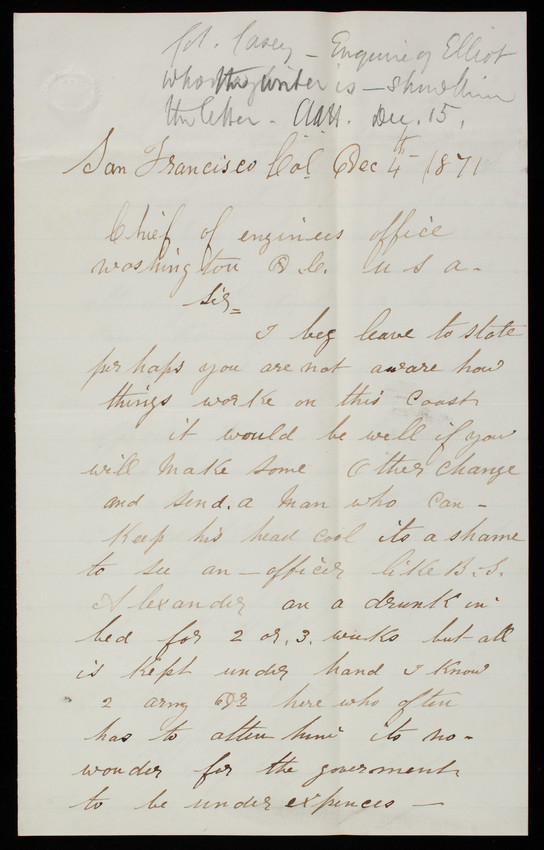 Col. Casey – Enquire of Elliot
who the writer is – show him
the letter. AAH. Dec. 15,
San Francisco Cal Dec 4th 1871
Chief of engineers office
washington D C. U S a -
Sir =
I beg leave to state
perhaps you are not aware how
things worke on this Coast
it would be well if you
will Make some Other Change
and send. a Man who Can -
Keep his head Cool its a shame
to see an - officer like B. S.
Alexander on a drunk in
bed for 2 or. 3. weeks but all
is kept under hand I Know
2 army Dr here who often
has to atten him its no -
wonder for the goverment
to be under expences —